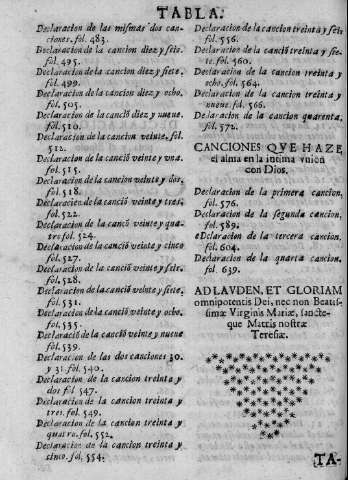 TABLA.
Declaracion de las mismas dos can-
ciones. fol. 483.
Declaracion de la cancion diez y seis.
fol. 495.
Declaracion de la cancion diez y siete.
fol. 499.
Declaracion de la cancion diez y ocho.
fol. 505.
Declaracion de la canciō diez y nueue.
fol. 510.
Declaracion de la cancion veinte. fol.
512.
Declaracion de la canciō veinte y vna.
fol. 515.
Declaracion de la cancion veinte y dos.
fol. 518.
Declaracion de la canciō veinte y tres.
fol. 522.
Declaracion de la canciō veinte y qua-
tro fol. 524.
Declaracion de la canciō veinte y cinco
fol. 527.
Declaracion de la canciō veinte y seis.
fol. 528.
Declaracion de la canciō veinte y siete.
fol. 531.
Declaracion de la canciō veinte y ocho.
fol. 535.
Declaraciō de la canciō veinte y nueue
fol. 539.
Declaracion de las dos canciones 30.
y 31. fol. 540.
Declaracion de la cancion treinta y
dos fol. 547.
Declaracion de la cancion treinta y
tres. fol. 549.
Declaracion de la cancion treinta y
quatro. fol. 552.
Declaracion de la cancion treinta y
cinco. fol. 554.
Declaracion de la cancion treinta y seis
fol. 556.
Declaracion de la canciō treinta y sie-
te. fol. 560.
Declaracion de la cancion treinta y
ocho. fol. 564.
Declaracion de la cancion treinta y
nueue. fol. 566.
Declaracion de la cancion quarenta.
fol. 572.
CANCIONES QVE HAZE
el alma en la intima vnion
con Dios.
Declaracion de la primera cancion.
fol. 576.
Declaracion de la segunda cancion.
fol. 589.
Declaracion de la tercera cancion.
fol. 604
Declaracion de la quarta cancion.
fol. 639.
AD LAVDEN, ET GLORIAM
omnipotentis Dei, nec non Beatis-
simæ Virginis Mariæ, sanctæ-
que Matris nostræ
Teresiæ.
TA-